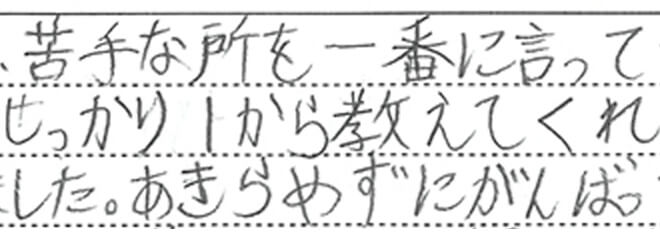 、苦手な所を一番に言って
せっかり1から教えてくれ
ました。あきらめずにがんばっ